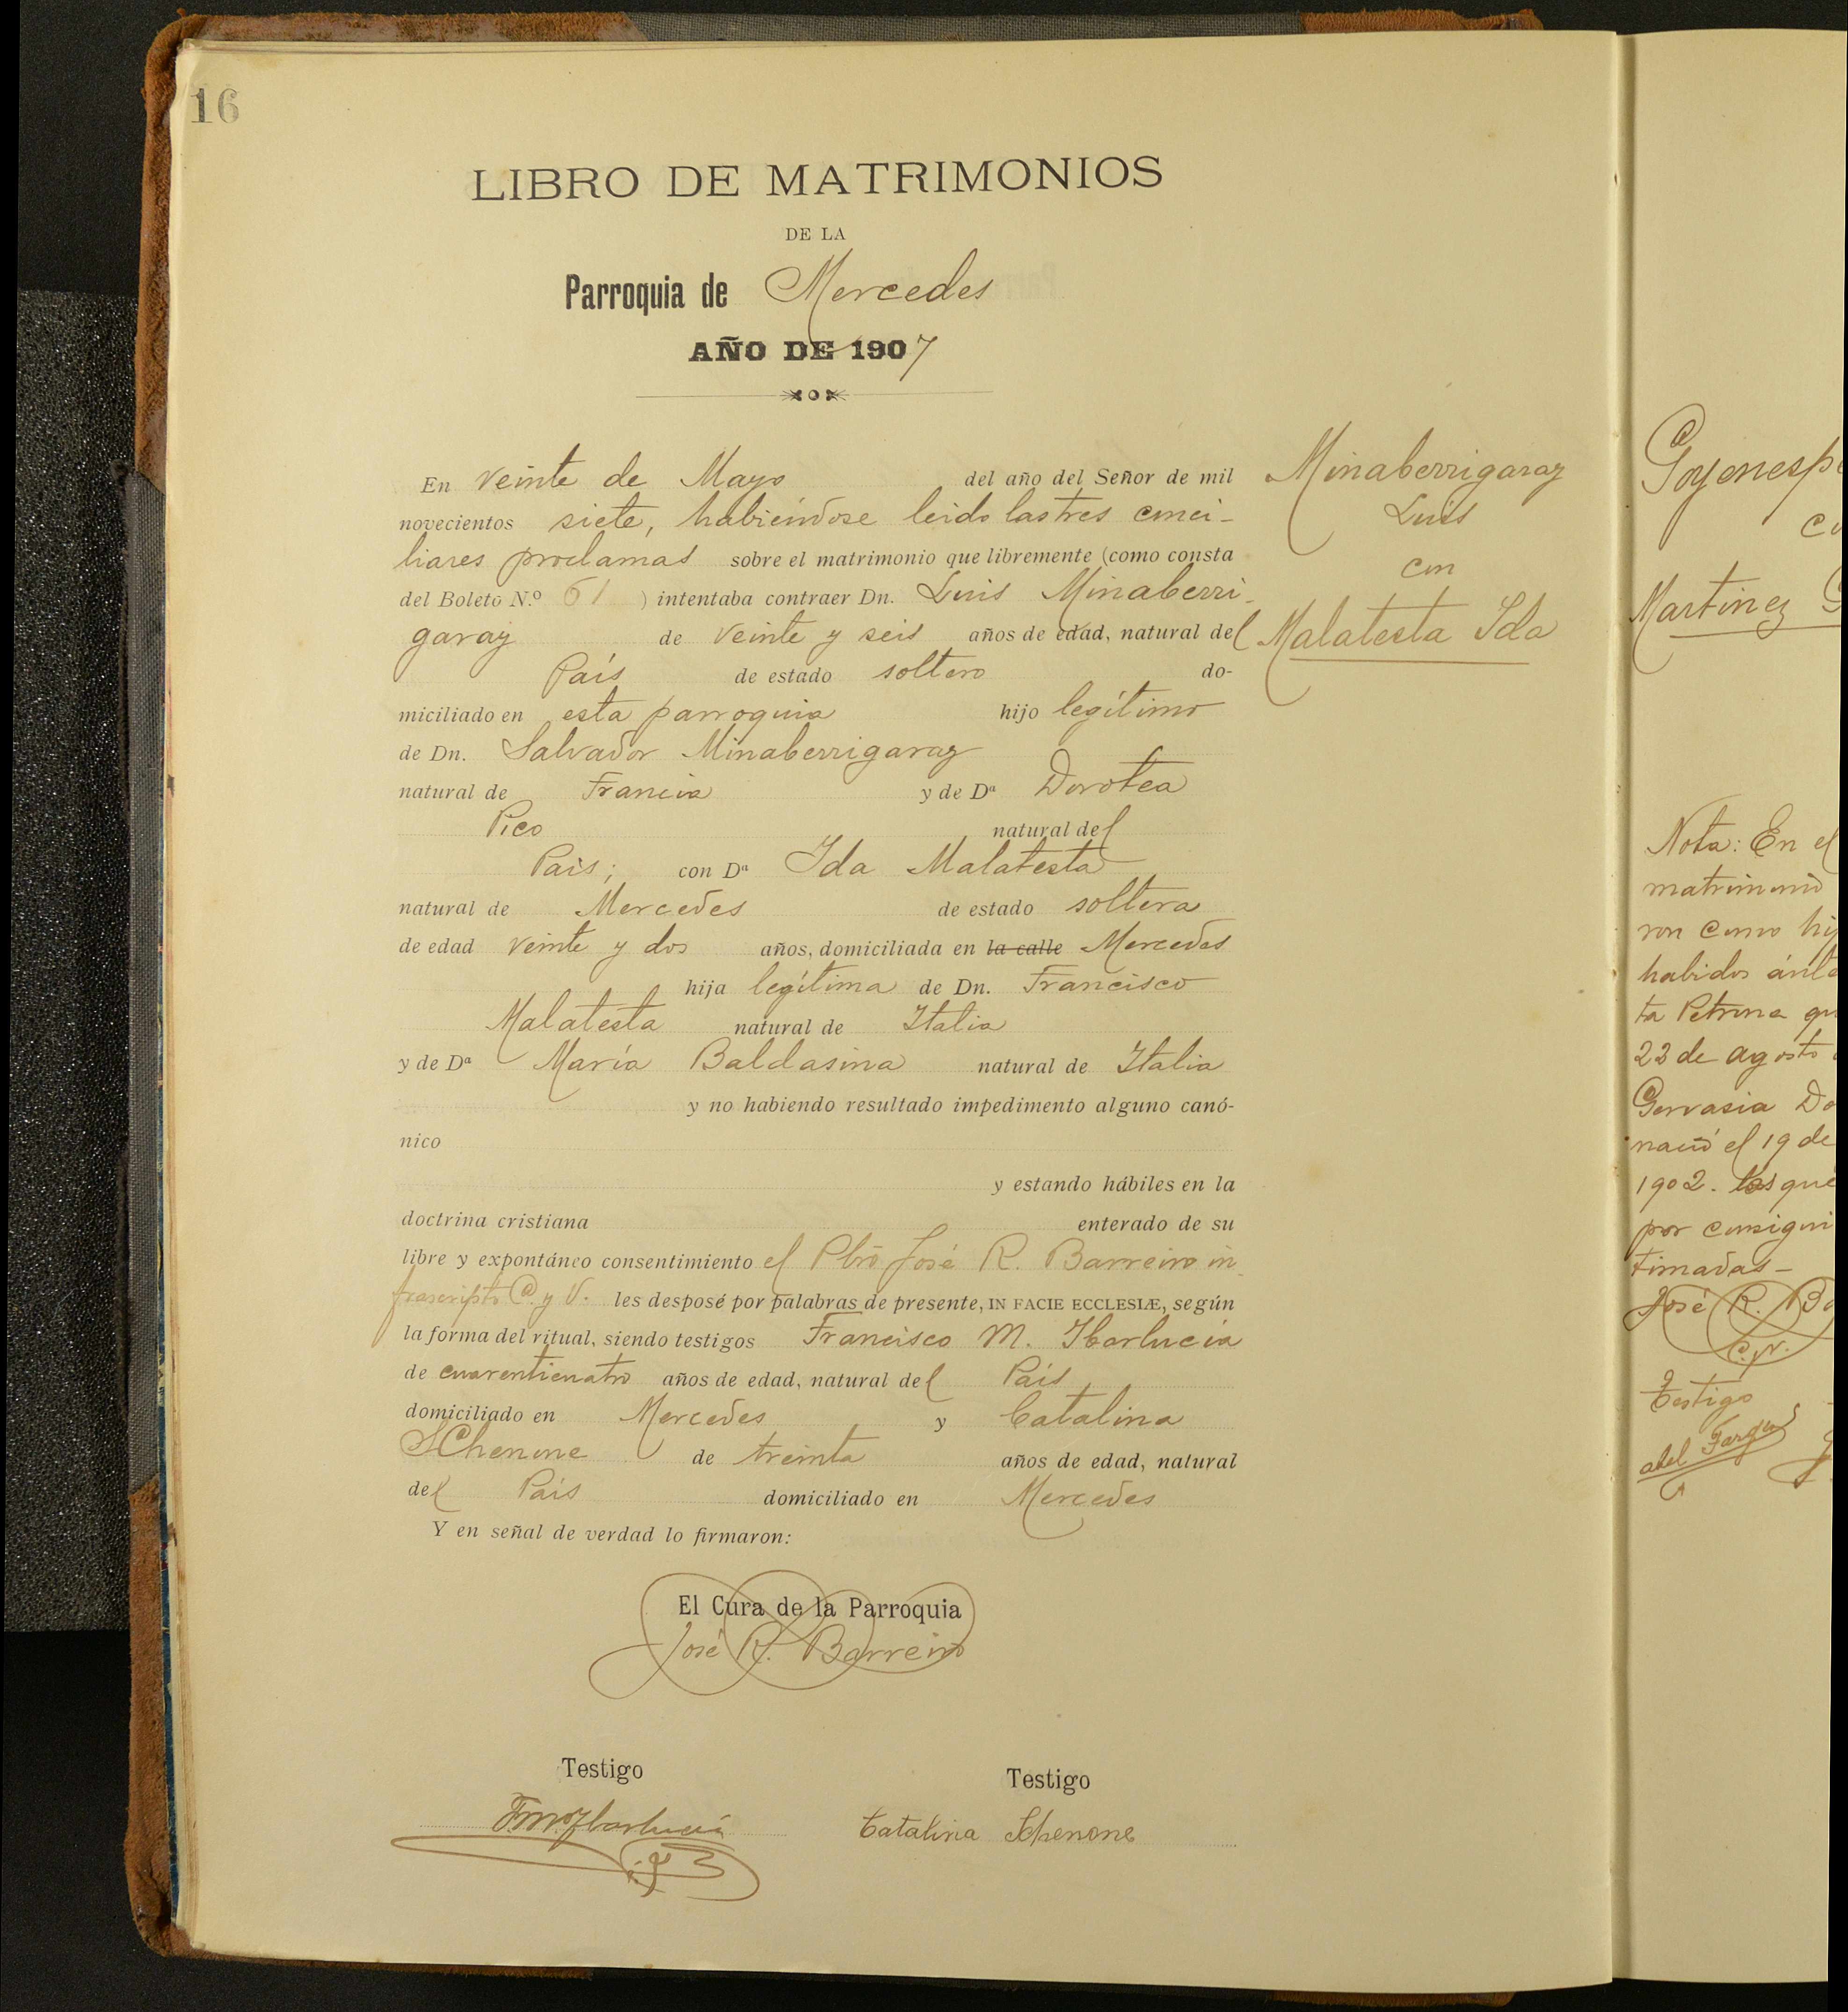 16
LIBRO DE MATRIMONIOS
DE LA
Parroquia de Mercedes
AÑO DE 1907
En veinte de Mayo del año del Señor de mil
novecientos siete, habiéndose leido las tres conci-
liares proclamas sobre el matrimonio que libremente (como consta
del Boleto N.º 61 ) intentaba contraer Dn. Luis Minaberri-
garay de veinte y seis años de edad, natural del
País de estado soltero do-
miciliado en esta parroquia hijo legítimo
de Dn. Salvador Minaberrigaray
natural de Francia y de Dª Dorotea
Pico natural del
Pais; con Dª Ida Malatesta
natural de Mercedes de estado soltera
de edad veinte y dos años, domiciliada en la calle Mercedes
hija legítima de Dn. Francisco
Malatesta natural de Italia
y de Dª María Baldasina natural de Italia
y no habiendo resultado impedimento alguno canó-
nico
y estando hábiles en la
doctrina cristiana enterado de su
libre y expontáneo consentimiento el Pbro José R. Barreiro in
frascripto C. y V. les desposé por palabras de presente, IN FACIE ECCLESIÆ, según
la forma del ritual, siendo testigos Francisco M. Ibarlucia
de cuarenticuatro años de edad, natural del País
domiciliado en Mercedes y Catalina
SChenone de treinta años de edad, natural
del País domiciliado en Mercedes
Y en señal de verdad lo firmaron:
El Cura de la Parroquia
José R. Barreiro
Testigo Testigo
F. M. Ibarlucía Catalina Schenone
Minaberrigaray
Luis
con
Malatesta Ida
Goyenesp
co
Martinez G
Nota: En el
matrimonio
ron como hij
habidos ánte
ta Petrona qu
23 de agosto
Gervasia Do
nació el 19 de
1902. los que
por consigui
timadas—
José R. Ba
C. V.
Testigo